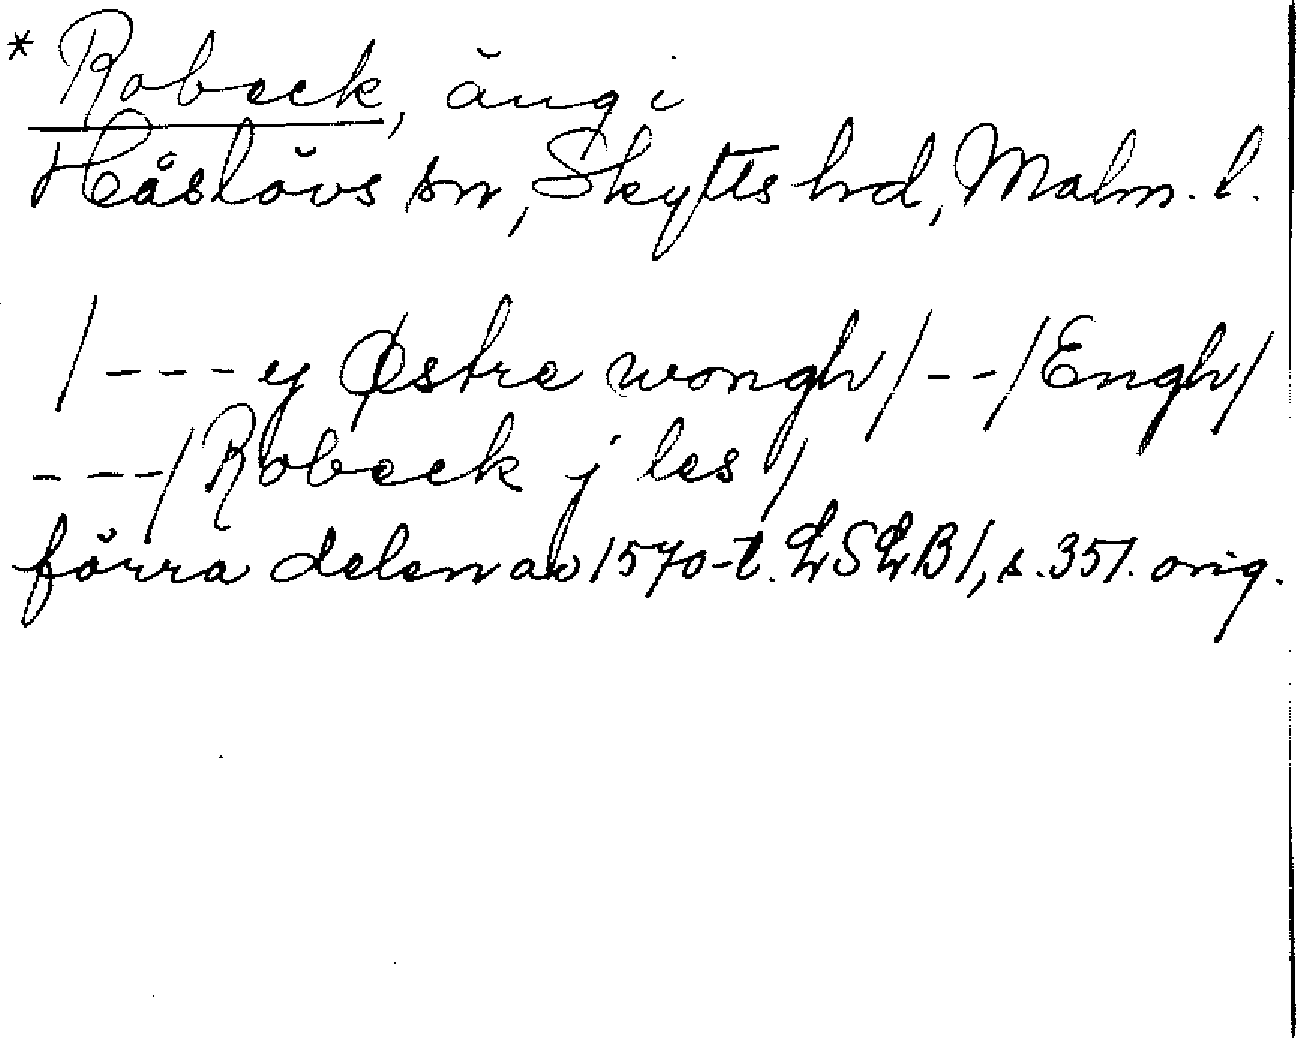 * Robeck, äng i
Håslövs sn, Skytts hd, Malm. l.
/--- y Østre wongh/--/Engh/
---/Robeck j les/
förra delen av 1570-t. LSLB1, s. 351. orig.